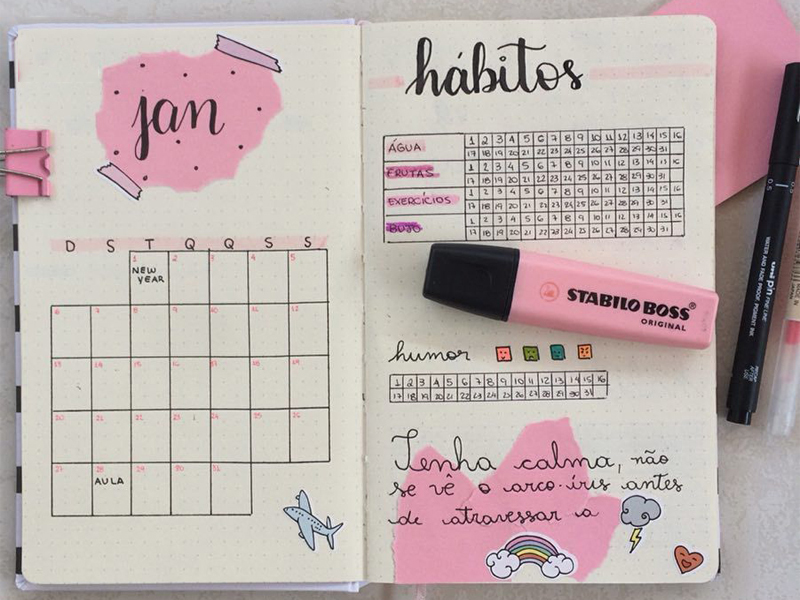 jan
D S T Q Q S S
1 2 3 4 5
NEW
YEAR
6 7 8 9 10 11 12
13 14 15 16 17 18 19
20 21 22 23 24 25 26
27 28 29 30 31
AULA
hábitos
ÁGUA 1 2 3 4 5 6 7 8 9 10 11 12 13 14 15 16
17 18 19 20 21 22 23 24 25 26 27 28 29 30 31
FRUTAS 1 2 3 4 5 6 7 8 9 10 11 12 13 14 15 16
17 18 19 20 21 22 23 24 25 26 27 28 29 30 31
EXERCÍCIOS 1 2 3 4 5 6 7 8 9 10 11 12 13 14 15 16
17 18 19 20 21 22 23 24 25 26 27 28 29 30 31
BUJO 1 2 3 4 5 6 7 8 9 10 11 12 13 14 15 16
17 18 19 20 21 22 23 24 25 26 27 28 29 30 31
STABILO BOSS®
ORIGINAL
humor
1 2 3 4 5 6 7 8 9 10 11 12 13 14 15 16
17 18 19 20 21 22 23 24 25 26 27 28 29 30 31
Tenha calma, não
se vê o arco-íris antes
de atravessar a
0.5
uni pin FINE LINE
WATER AND FADE PROOF, PIGMENT INK